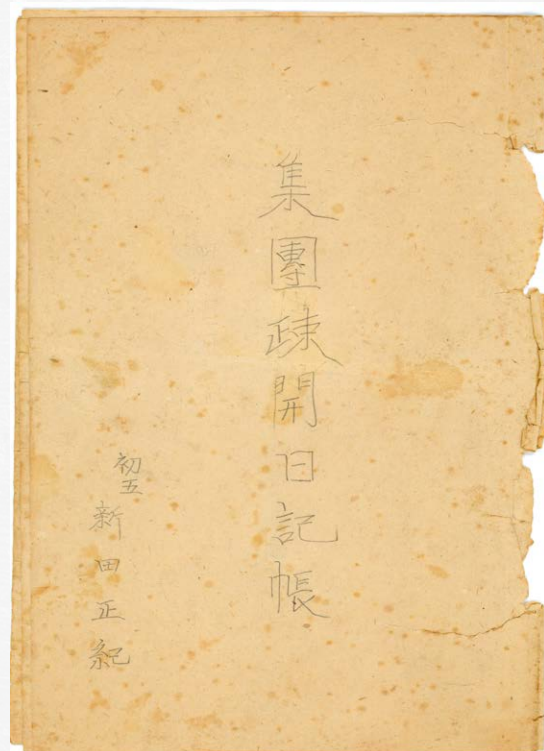 集團疎開日記帳
初五
新田正紀